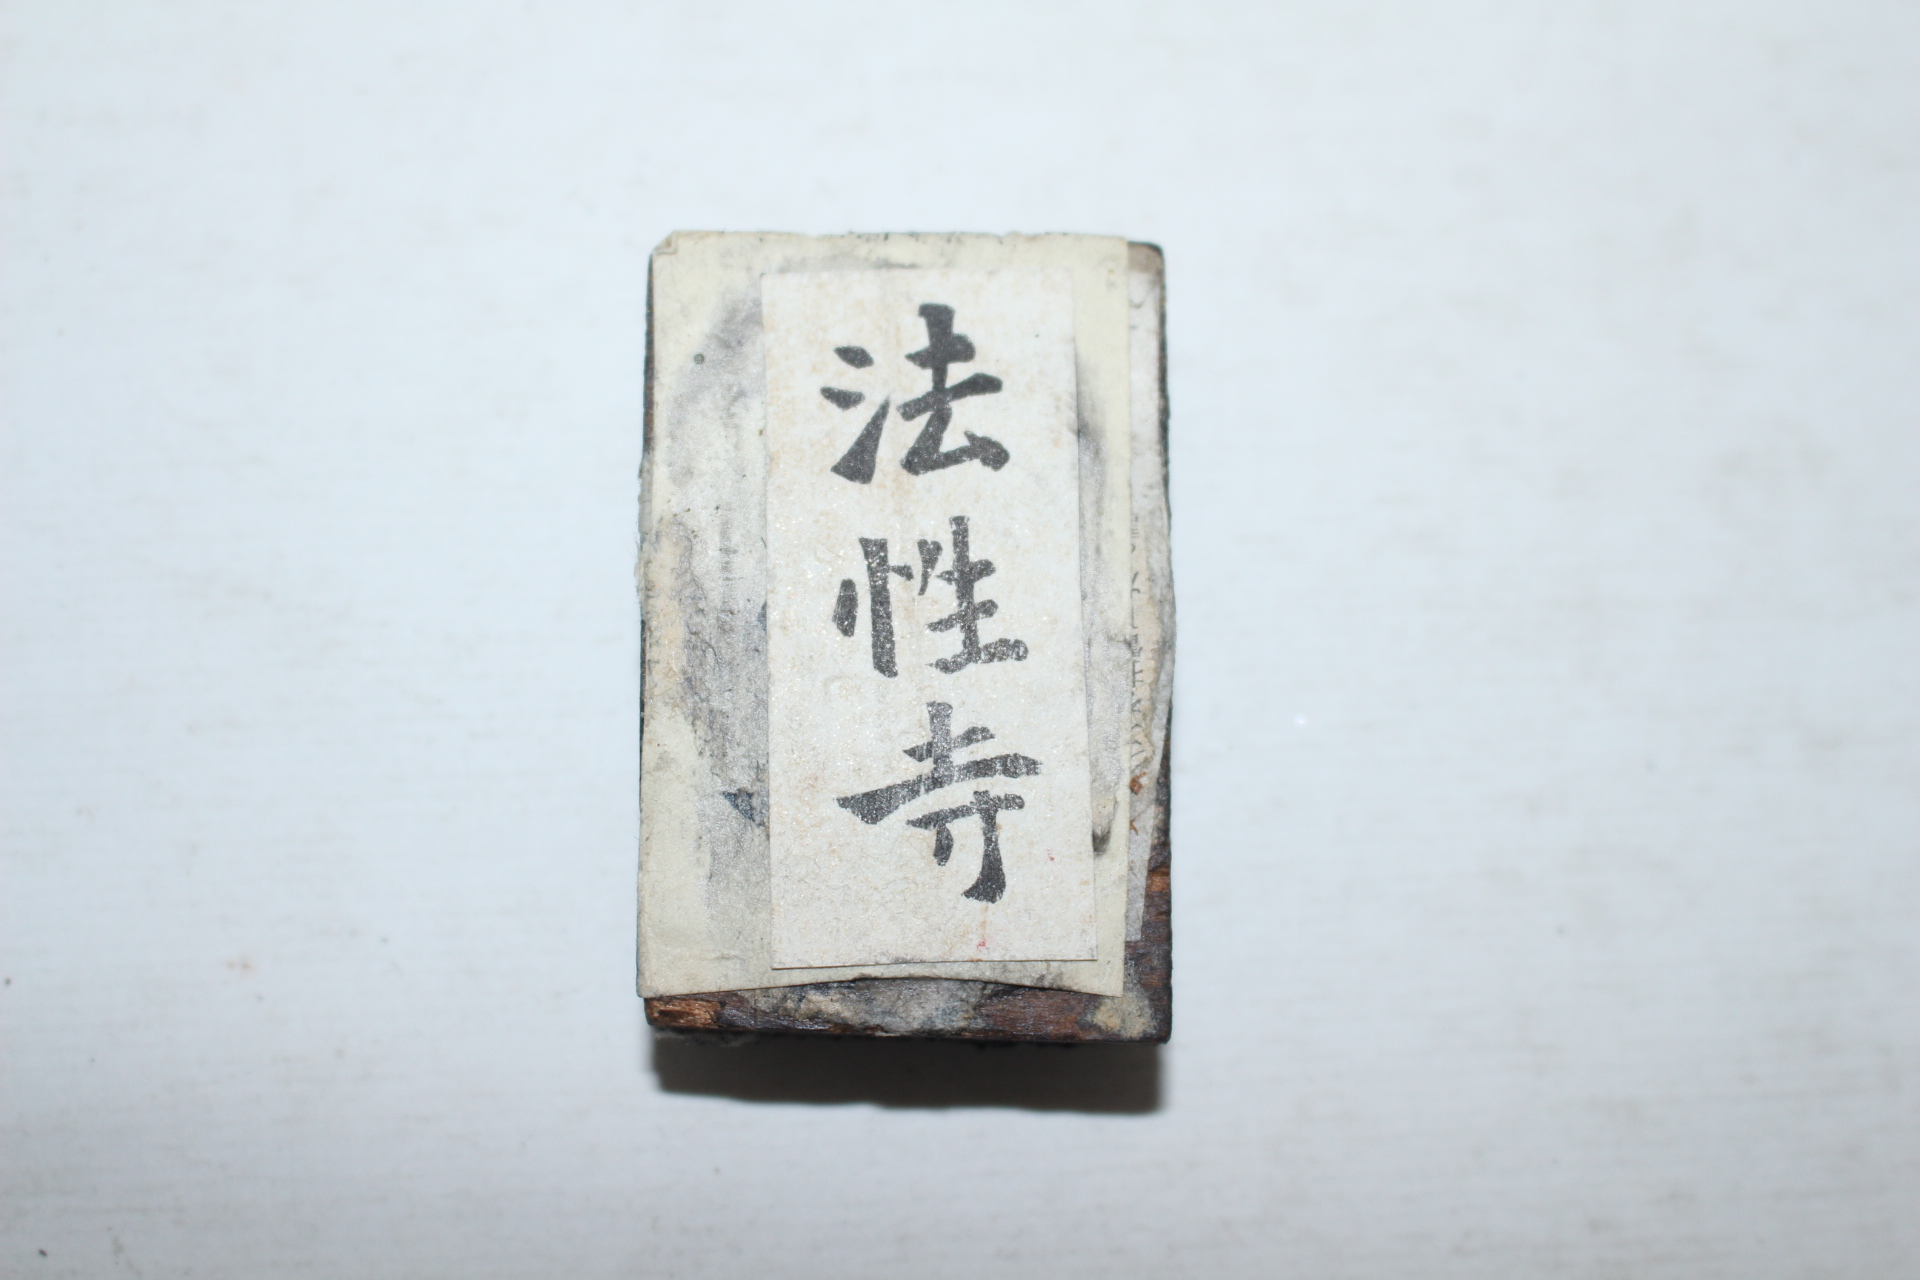 法性寺